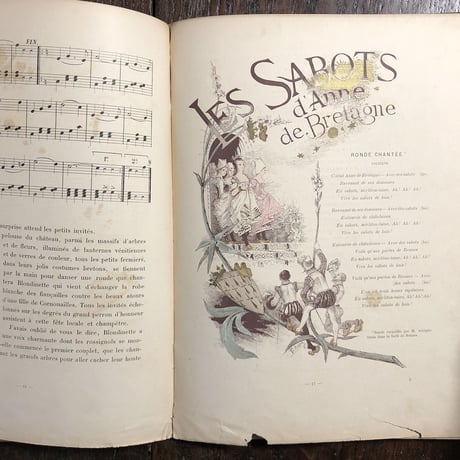 FIN
surprise attend les petits invités.
pelouse du château, parmi les massifs d'arbres
et de fleurs, illuminés de lanternes vénitiennes
et de verres de couleur, tous les petits fermiers,
dans leurs jolis costumes bretons, se tiennent
par la main pour danser une ronde que chan-
tera Blondinette qui vient d'échanger la robe
blanche des fiançailles contre les beaux atours
d'une fille de Cornouailles. Tous les invités éche-
lonnés sur les degrés du grand perron d'honneur
assistent à cette fête locale et champêtre.
J'avais oublié de vous le dire, Blondinette a
une voix charmante dont les rossignols se mon-
commence le premier couplet, que les chan-
les grands arbres pour aller cacher leur honte
LES SABOTS
d'Anne
de Bretagne
RONDE CHANTÉE
C'était Anne de Bretagne — Avec des sabots (bis)
Revenant de ses domaines
En sabots, mirlitontaine, Ah! Ah! Ah!
Vive les sabots de bois!
Revenant de ses domaines — Avec des sabots (bis)
Entourée de châtelaines
En sabots, mirlitontaine, Ah! Ah! Ah!
Vive les sabots de bois!
Entourée de châtelaines — Avec des sabots (bis)
Voilà qu'aux portes de Rennes
En sabots, mirlitontaine, Ah! Ah! Ah!
Vive les sabots de bois!
Voilà qu'aux portes de Rennes — Avec
des sabots (bis)
En sabots, mirlitontaine,
Ah! Ah! Ah!
Vive les sabots
de bois!